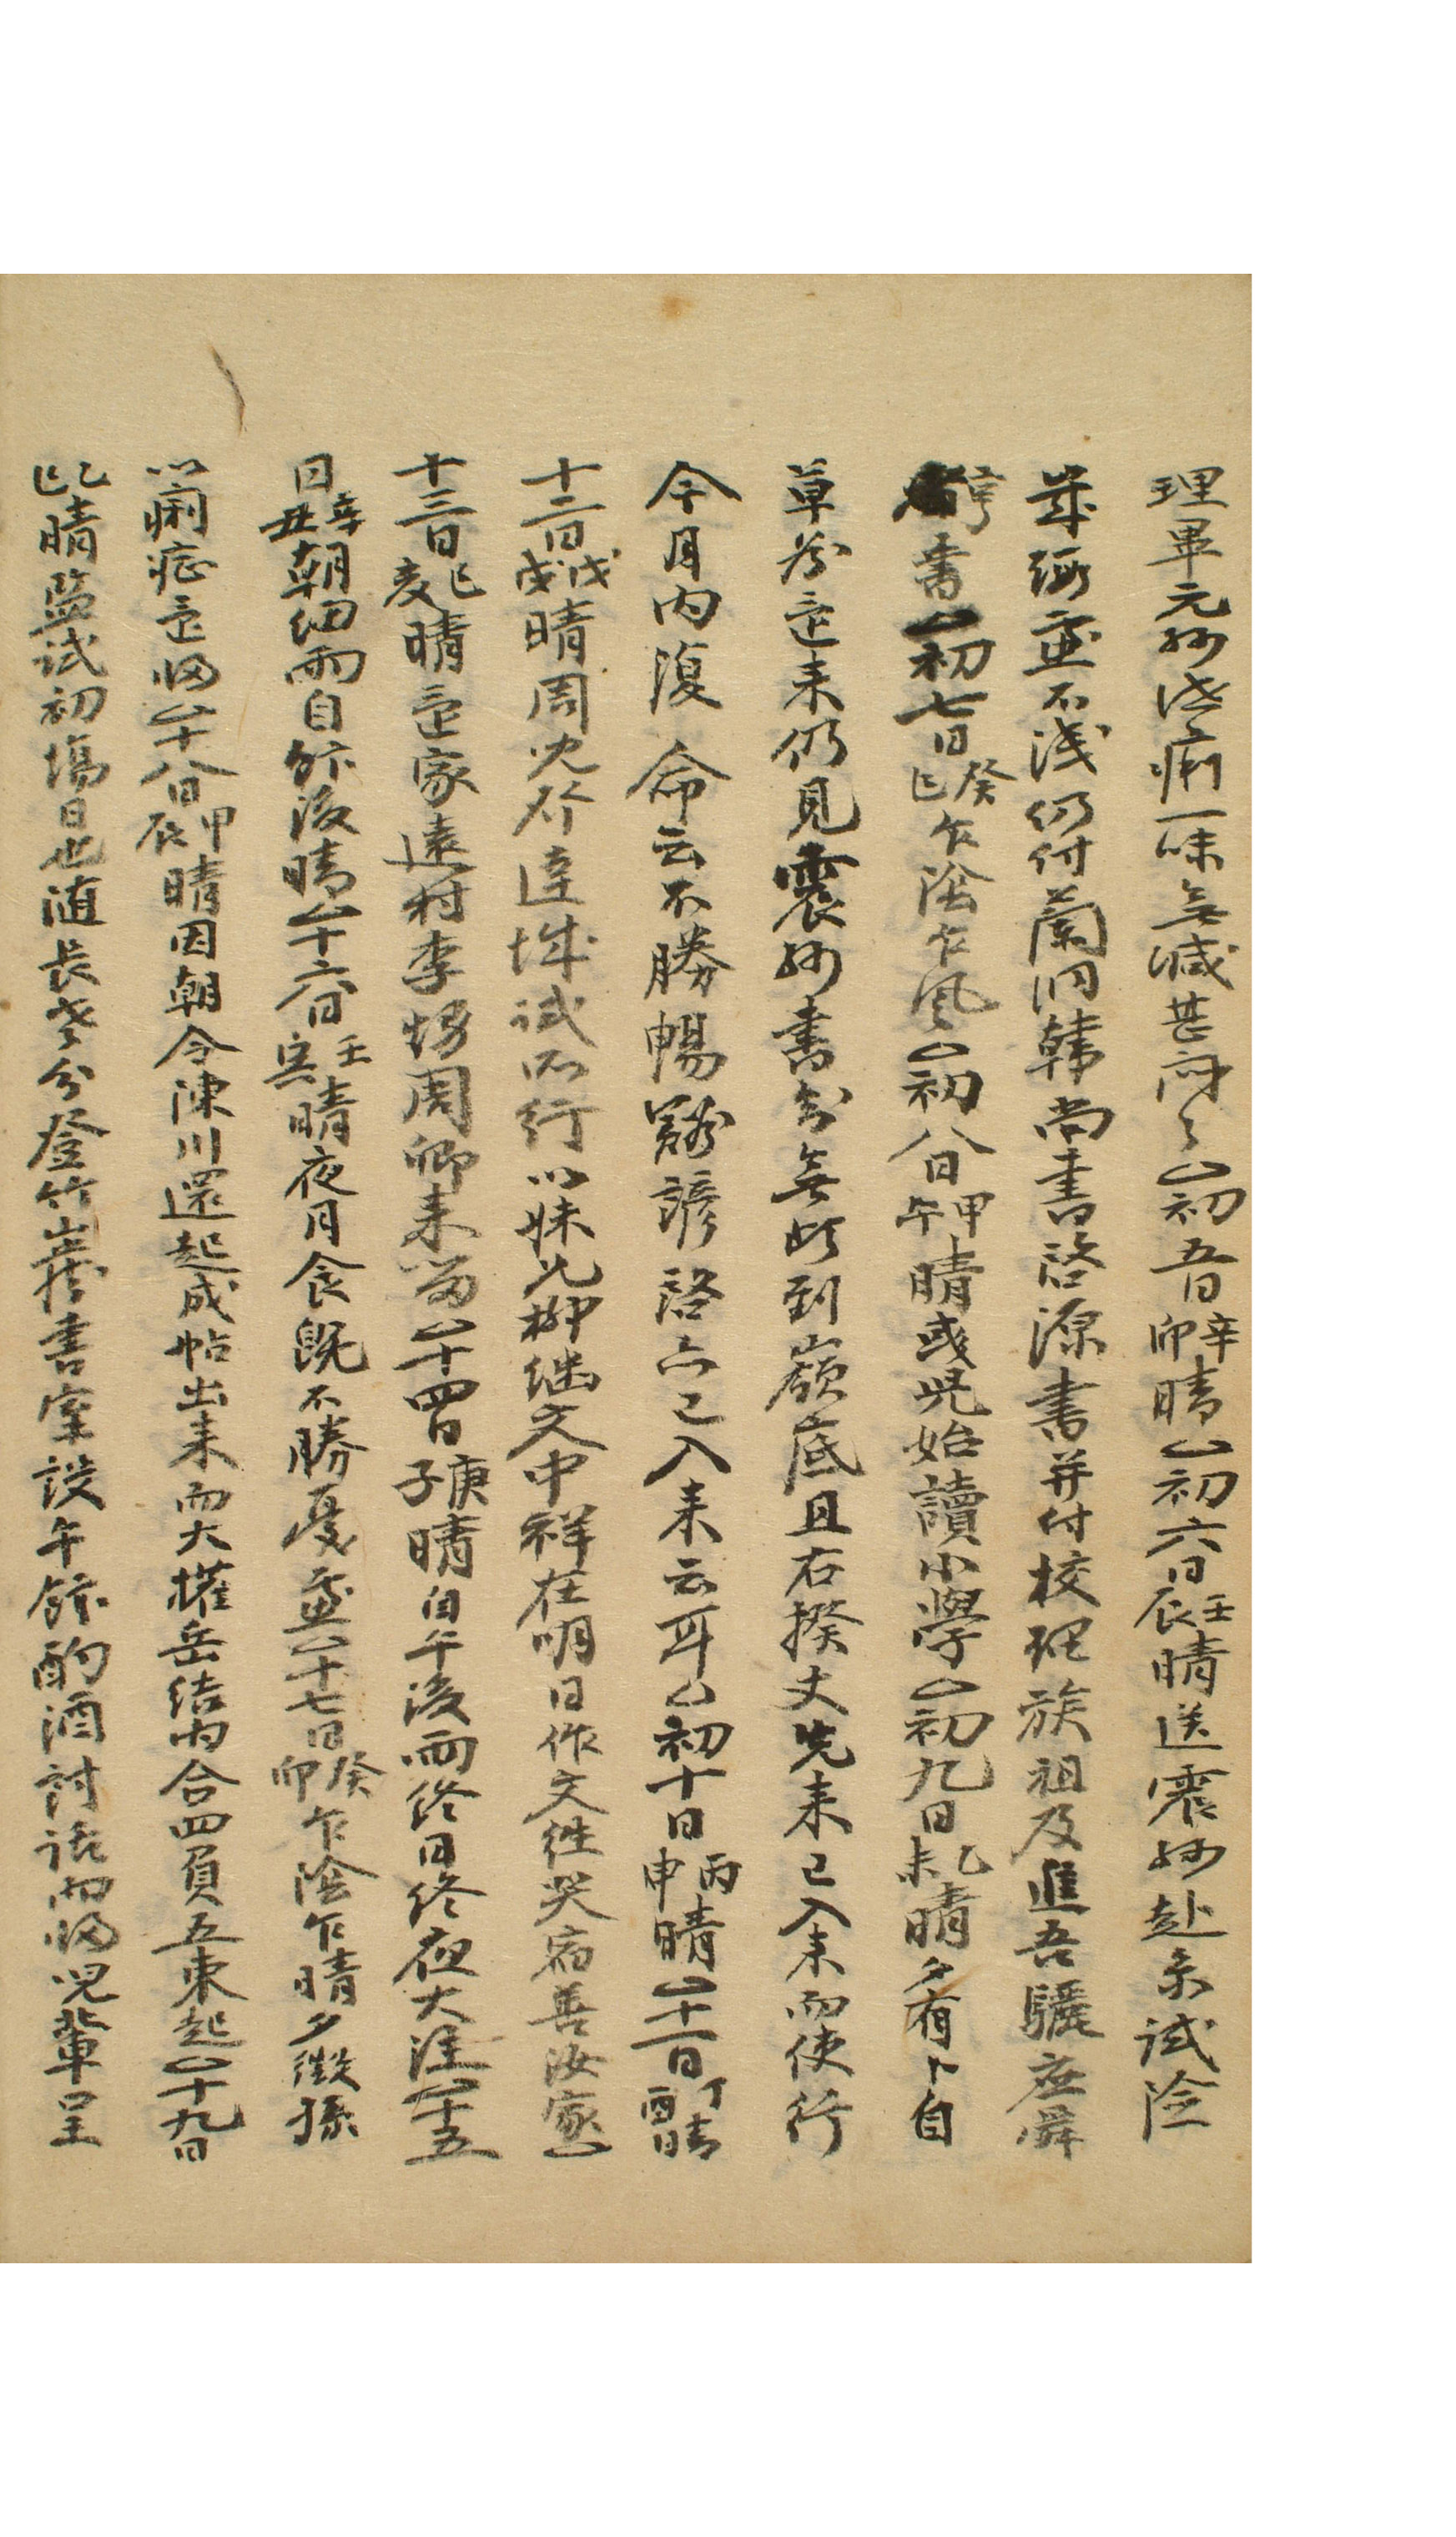 理畢元姪痁痢一味無減甚悶々△初五日辛卯晴△初六日壬辰晴送震姪赴京試険

歲極慮不淺仍付蘭洞韓尚書啓源書并付校理族祖及進吾驪庄舜
亨書△初七日癸巳乍陰乍風△初八日甲午晴或児始讀小學△初九日乙未晴夕有卜自
草谷還来仍見震姪書知無頉到嶺底且右揆丈先来已入来而使行
今月內復命云不勝暢豁諺啓亦已入来云耳△初十日丙申晴△十一日丁酉晴
十二日戊戌晴周兄發達城試所行以妹兄柳継文中祥在明日作文徃哭宿善汝家△
十三日己亥晴還家遠村李甥周卿来留△十四日庚子晴自午後雨終日終夜大注△十五
日辛丑朝細雨自飯後晴△十六日壬寅晴夜月食既不勝憂慮△十七日癸卯乍陰乍晴夕徴孫
以痢症還歸△十八日甲辰晴因朝令凍川還起成帖出来而大權岳結內合四負五束起△十九日
乙巳晴監試初場日也随長老分登竹岩書室設午飯酌酒討話而歸児輩呈